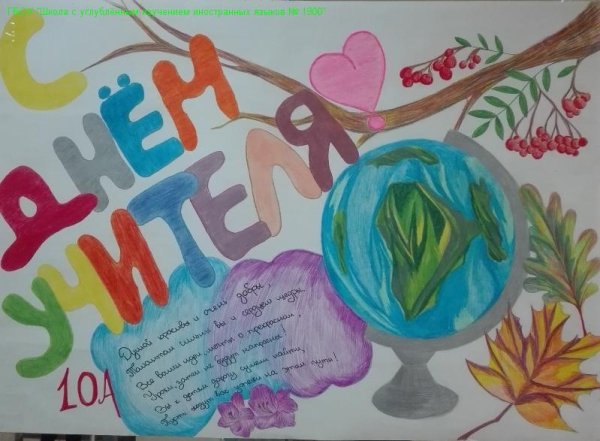 ГБОУ "Школа с углубленным изучением иностранных языков № 1900"
С
ДНЁМ
УЧИТЕЛЯ
Душой красивы и очень добры,
Талантом сильны вы и сердцем щедры.
Все ваши идеи, мечты о прекрасном,
Уроки, затеи не будут напрасны!
Вы к детям дорогу сумели найти,
Пусть ждут вас успехи на этом пути!
10А